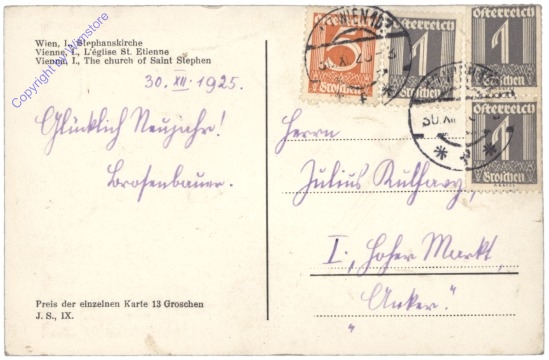 Wien, I., Stephanskirche
Vienne, I., L'église St. Etienne
Vienna, I., The church of Saint Stephen
Copyright by Wnstore
30. XII. 1925.
Glücklich Neujahr!
Brosenbauer.
Preis der einzelnen Karte 13 Groschen
J. S., IX.
5
Groschen
Österreich
1
Groschen
Österreich
1
Österreich
1
Groschen
WIEN
30. XII
Herrn
Julius Kulhavy,
I., Hoher Markt,
„Anker."